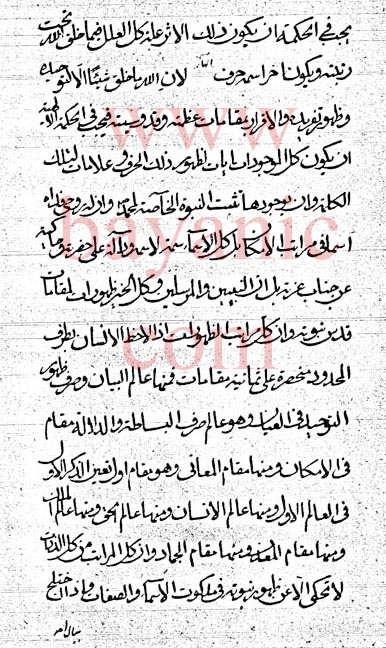 يجب في الحكمة ان يكون ذلك الاثر علة كل العلل فيما خلق تحت
رتبته ويكون اخر اسمه حرف لان الله ما خلق شيئا الا لتوحيده
وظهور تفريده والاقرار بمقامات عظمته وقدوسيته فيجب في الحكمة
ان يكون كل الموجودات ايات لظهور ذلك الحرف وعلامات لتلك
الكلمة وان بوجودها تثبت النبوة الخاصة لمحمد
اسما في مراتب الامكان كل الاسماء سمة لاسمه ودالة على حضرته
عن جناب عزته بل ان النبيين والمرسلين وكل الخلق ظهورات لمقامات
قدس نبوته وان كل مراتب الظهورات اذا لاحظ الانسان بطرف
المحدود منحصرة على ثمانية مقامات فمنها عالم البيان وصرف ظهور
التوحيد في العيان وهو عالم صرف البساطة والدلالة مقام
في الامكان ومنها مقام المعاني وهو مقام اول تعين الذكر الاول
في العالم الاول ومنها عالم الانسان ومنها عالم الجن ومنها عالم الملك
ومنها مقام المعدن ومنها مقام الجماد وان كل المراتب من كل الذرات
لا تحكي الا عن ظهور نبوته في ملكوت الاسماء والصفات
www
bayanic
com